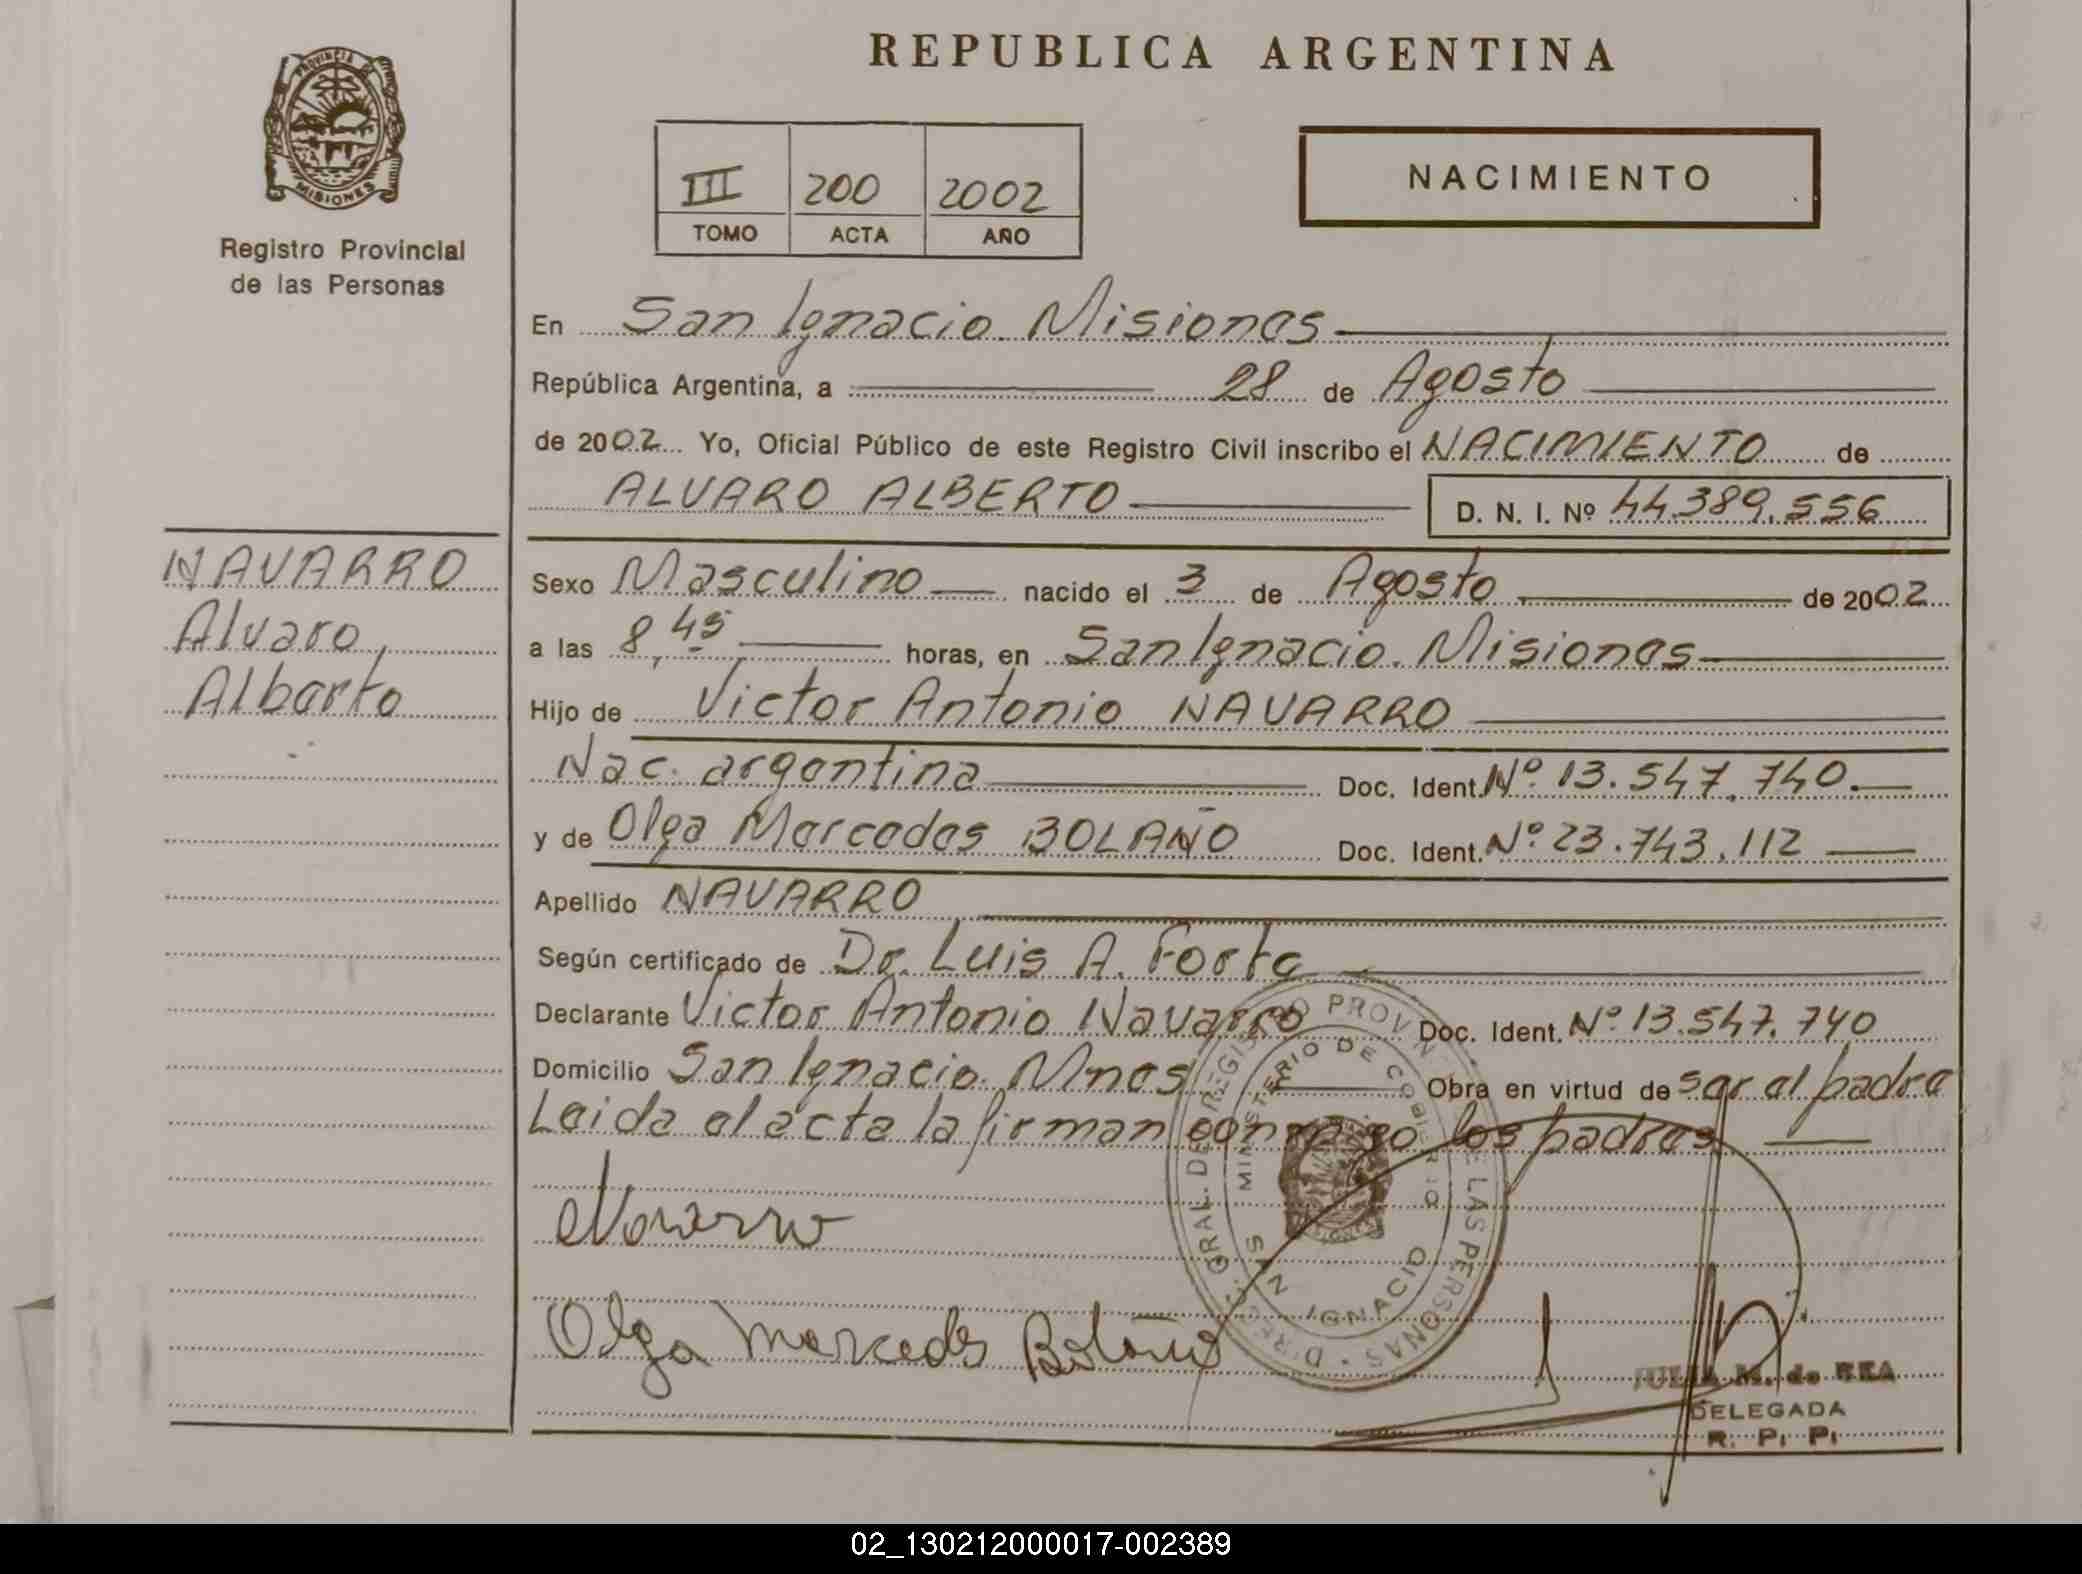 REPUBLICA ARGENTINA
PROVINCIA DE MISIONES
Registro Provincial
de las Personas
III 200 2002
TOMO ACTA AÑO
NACIMIENTO
En San Ignacio. Misiones
República Argentina, a 28 de Agosto
de 2002 Yo, Oficial Público de este Registro Civil inscribo el NACIMIENTO de
ALVARO ALBERTO D. N. I. Nº 44.389.556
NAVARRO
Alvaro
Alberto
Sexo Masculino nacido el 3 de Agosto de 2002
a las 8,45 horas, en San Ignacio. Misiones
Hijo de Victor Antonio NAVARRO
Nac. argentina Doc. Ident. Nº 13.547.740
y de Olga Mercedes BOLAÑO Doc. Ident. Nº 23.743.112
Apellido NAVARRO
Según certificado de Dr. Luis A. Forte
Declarante Victor Antonio Navarro Doc. Ident. Nº 13.547.740
Domicilio San Ignacio. Mnes Obra en virtud de ser el padre
Leida el acta la firman conmigo los padres
Navarro
Olga Mercedes Bolaño
DIREC. GRAL. DE REGISTRO PROVINCIAL DE LAS PERSONAS
MINISTERIO DE GOBIERNO
SAN IGNACIO
JULIA M. de REA
DELEGADA
R. P. P.
02_130212000017-002389